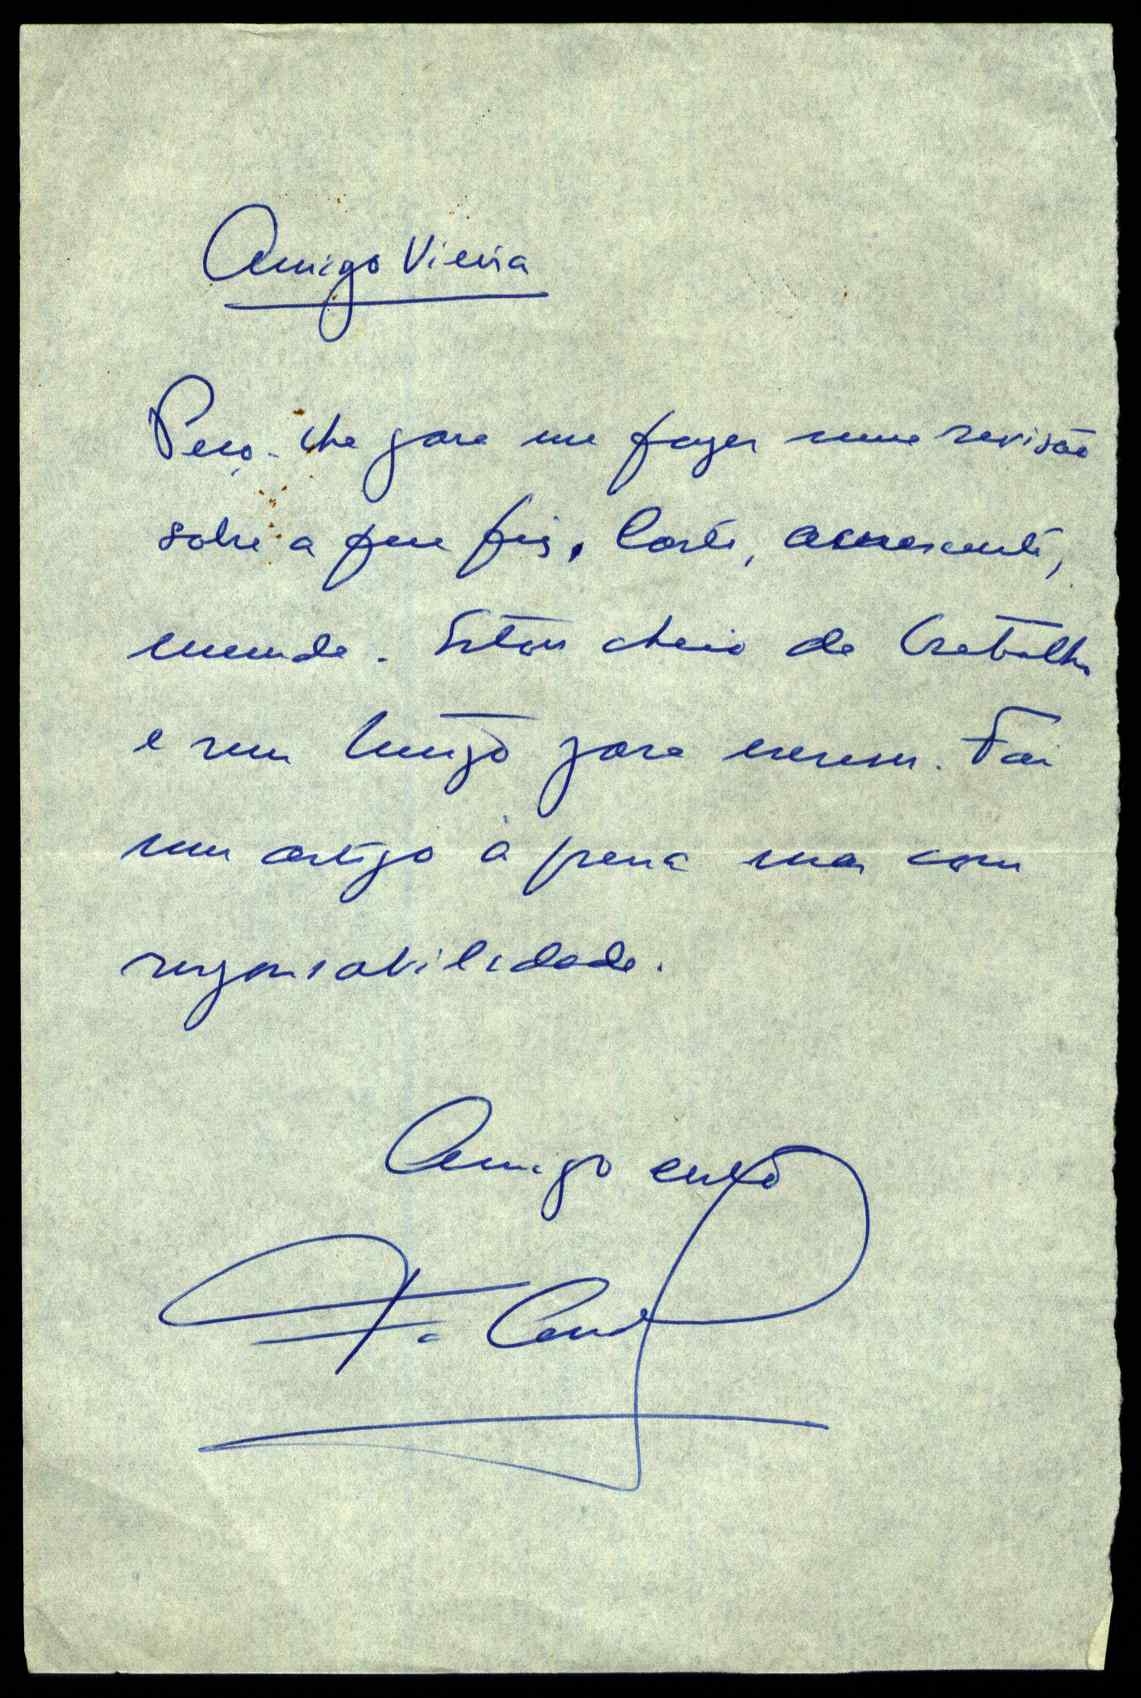 Amigo Vieira
Peço-lhe para me fazer uma revisão
sobre a que fiz. Corte, acrescente,
emende. Estou cheio de trabalho
e sem tempo para escrever. Foi
um artigo à pena mas com
responsabilidade.
Amigo certo